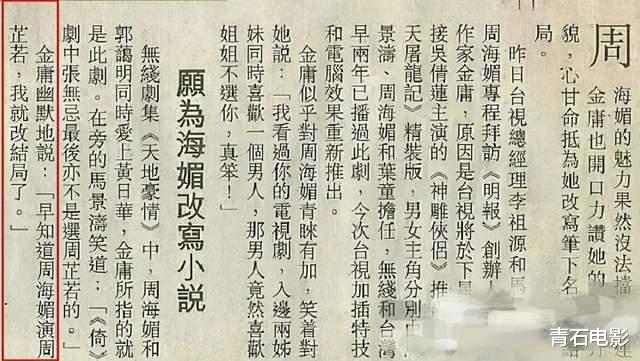 周
海媚的魅力果然沒法擋，連
金庸也開口力讚她的
貌，心甘命抵為她改寫筆下名 結
局。
昨日台視總經理李祖源和馬
周海媚專程拜訪《明報》創辦人
作家金庸，原因是台視將於下星
接吳倩蓮主演的《神雕俠侶》推
天屠龍記》精裝版，男女主角分別由
景濤、周海媚和葉童擔任，無綫和台灣
早兩年已播過此劇，今次台視加插特技
和電腦效果重新推出。
金庸似乎對周海媚青睞有加，笑着對
她說：「我看過你的電視劇，入邊兩姊
妹同時喜歡一個男人，那男人竟然喜歡
姐姐不選你，真笨！」
願為海媚改寫小說
無綫劇集《天地豪情》中，周海媚和
郭藹明同時愛上黃日華，金庸所指的就
是此劇。在旁的馬景濤笑道：「《倚》
劇中張無忌最後亦不是選周芷若的。」
金庸幽默地說：「早知道周海媚演周
芷若，我就改結局了。」
青石电影